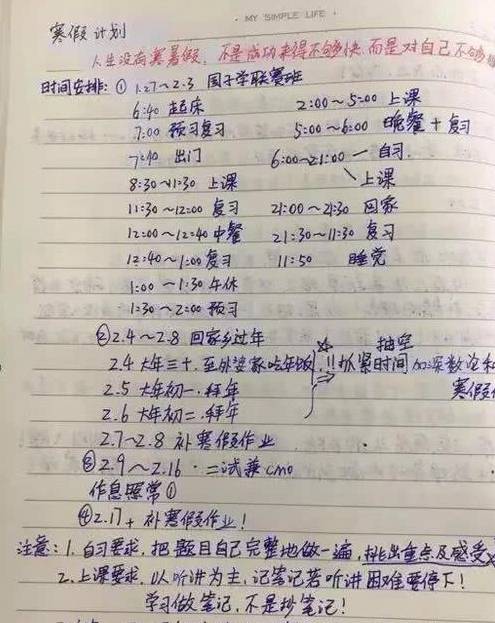 · MY SIMPLE LIFE ·
寒假计划
人生没有寒暑假，不是成功来得不够快而是对自己不够
时间安排：① 1.27～2.3 国子学联赛班
6:40 起床
2:00～5:00 上课
7:00 预习复习
5:00～6:00 晚餐+复习
7:40 出门
6:00～21:00 — 自习.
8:30～11:30 上课
上课
11:30～12:00 复习
21:00～21:30 回家
12:00～12:40 中餐
21:30～11:30 复习
12:40～1:00 复习
11:50 睡觉
1:00～1:30 午休
1:30～2:00 预习
②2.4～2.8 回家乡过年
抽空
2.4 大年三十. 至外婆家吃年饭
!! 抓紧时间加深数论和
2.5 大年初一. 拜年
寒假
2.6 大年初二. 拜年
2.7～2.8 补寒假作业
③2.9～2.16 · 三试兼cmo
作息照常①
④2.17+ 补寒假作业！
注意：1. 自习要求，把题目自己完整地做一遍，挑出重点及感受
2. 上课要求，以听讲为主，记笔记若听讲困难要停下！
学习做笔记，不是抄笔记！